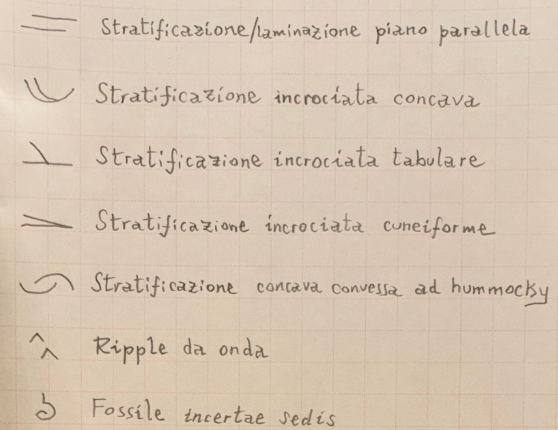 Stratificazione/laminazione piano parallela
Stratificazione incrociata concava
Stratificazione incrociata tabulare
Stratificazione incrociata cuneiforme
Stratificazione concava convessa ad hummocky
Ripple da onda
Fossile incertae sedis